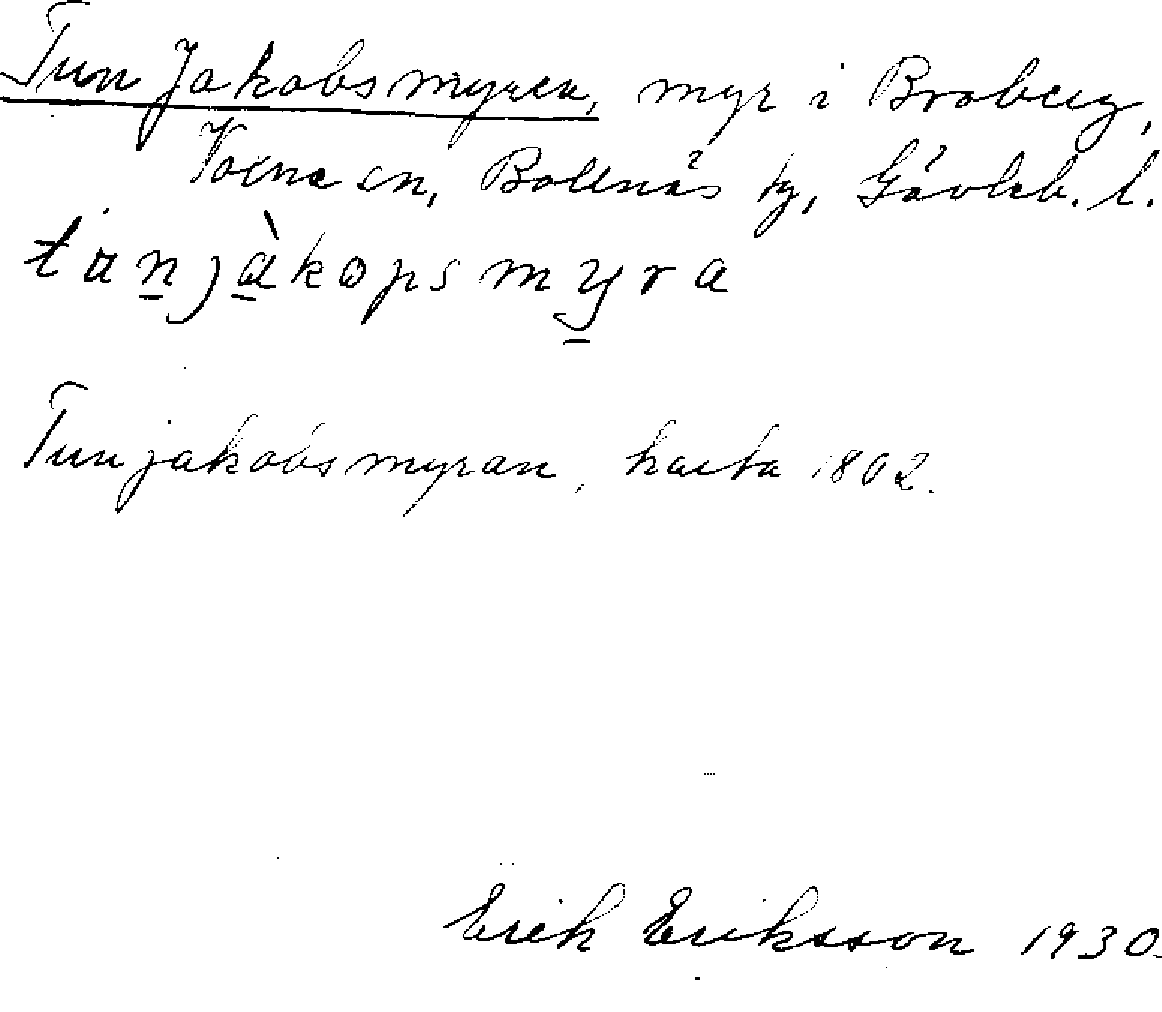 Tun Jakobsmyren, myr i Broberg,
Voxna sn, Bollnäs tg, Gävleb. l.
tanjàkopsmyra
Tunjakobsmyran, karta 1802.
Erik Eriksson 1930.